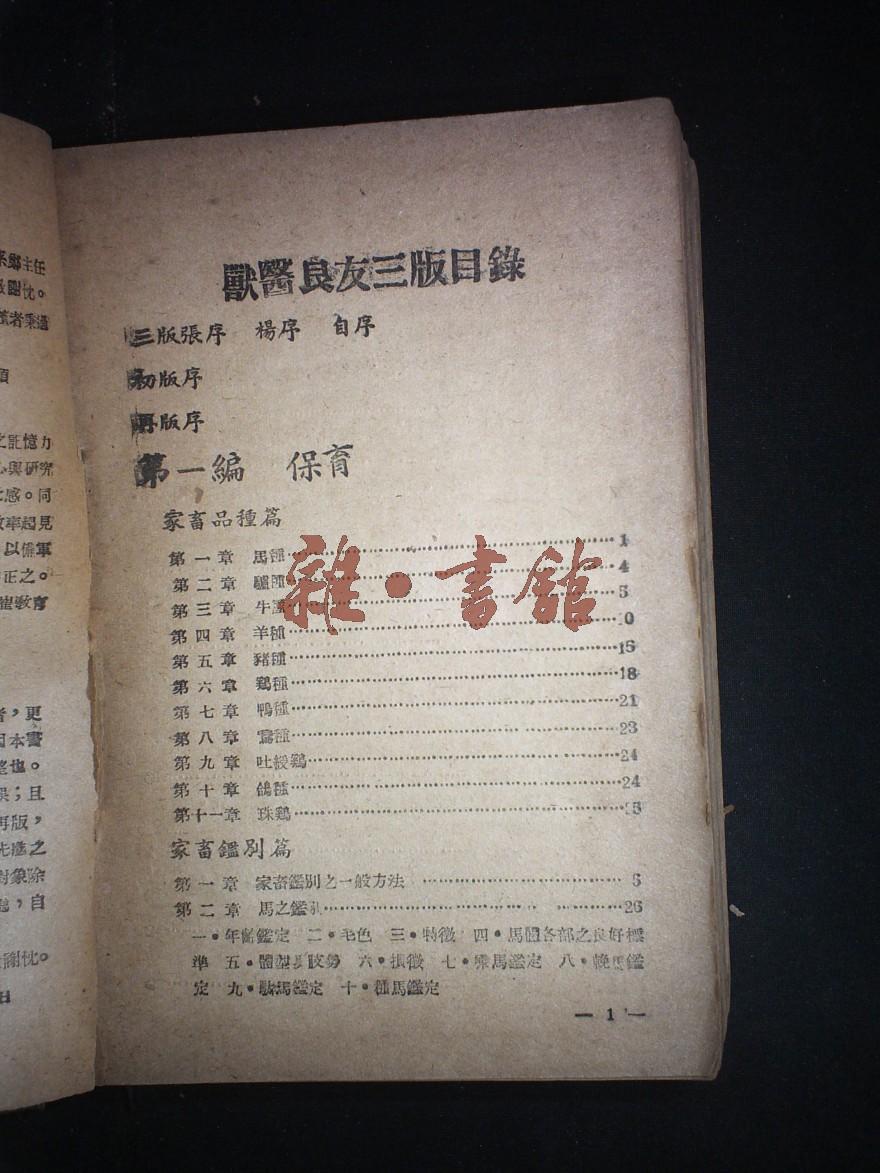 系鄭主任
謝忱。
者秉過
之記憶力
心與研究
感。同
效率起見
以備軍
正之。
教育
者,更
因本書
也。
誤;且
再版,
先進之
對象除
,自
謝忱。
日
獸醫良友三版目錄
三版張序 楊序 自序
初版序
再版序
第一編 保育
家畜品種篇
第一章 馬種 1
第二章 驢種 4
第三章 牛種 5
第四章 羊種 10
第五章 豬種 15
第六章 鷄種 18
第七章 鴨種 21
第八章 鵞種 23
第九章 吐綬鷄 24
第十章 鴿種 24
第十一章 珠鷄
家畜鑑別篇
第一章 家畜鑑別之一般方法
第二章 馬之鑑別 26
一•年齡鑑定 二•毛色 三•特徵 四•馬體各部之良好標
準 五•體型與肢勢 六•損徵 七•乘馬鑑定 八•輓馬鑑
定 九•馱馬鑑定 十•種馬鑑定
— 1 —
雜•書館